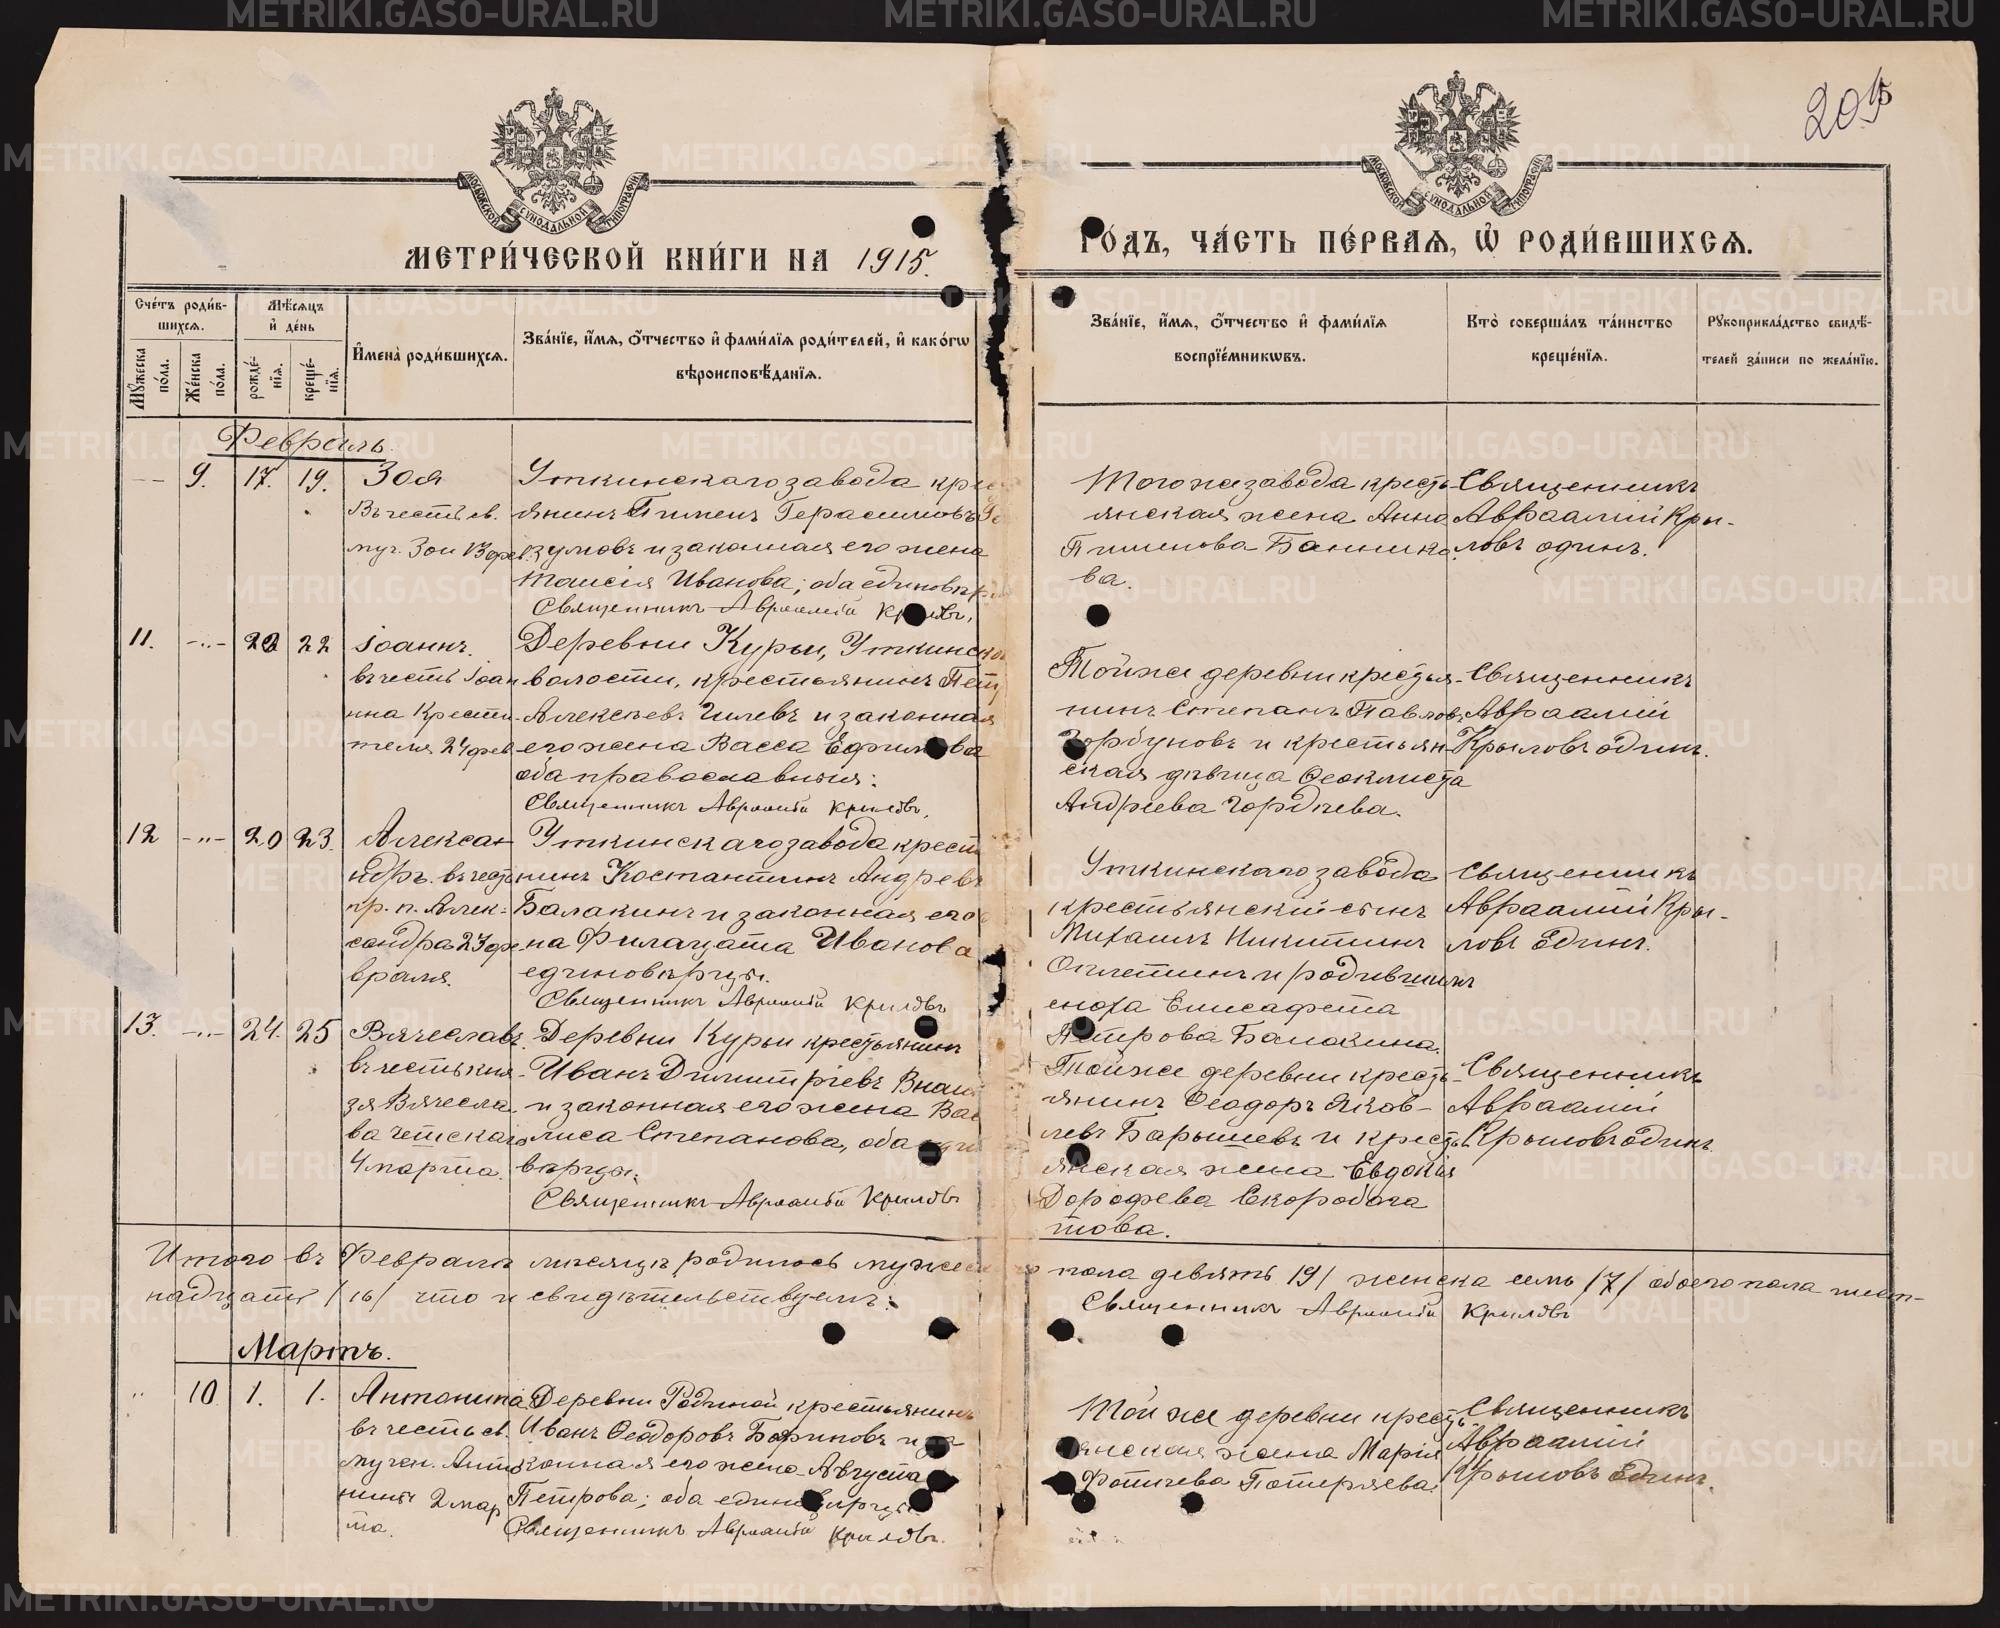 205
МЕТРИ́ЧЕСКОЙ КНИ́ГИ НА 1915.
РО́ДЪ, ЧА́СТЬ ПЕ́РВАЯ, Ѡ҆ РОДИ́ВШИХСЯ.
МОСКОВСКОЙ СѴНОДАЛЬНОЙ ТИПОГРАФІИ
МОСКОВСКОЙ СѴНОДАЛЬНОЙ ТИПОГРАФІИ
Сче́тъ роди́в-
шихся.
Мꙋ́жеска по́ла.
Же́нска по́ла.
Мѣ́сяцъ
и҆ де́нь
рожде́-
нїя.
креще́-
нїя.
И҆мена̀ роди́вшихся.
Зва́нїе, и҆́мя, ѻ҆́тчество и҆ фами́лїя роди́телей, и҆ како́гѡ
вѣроисповѣ́данїя.
Зва́нїе, и҆́мя, ѻ҆́тчество и҆ фами́лїя
воспрїе́мникѡвъ.
Кто̀ соверша́лъ та́инство
креще́нїя.
Рꙋкоприкла́дство свидѣ́-
телей за́писи по жела́нїю.
Февраль.
9. 17. 19. Зоя
Въ честь св.
муч. Зои 13 фев.
Уткинскаго завода кре
янинъ Пименъ Герасимовъ
зумовъ и законная его жена
Таисія Иванова; оба единовѣр
Священникъ Авраамій Крыловъ.
Того же завода кресть-
янская жена Анна
Пименова Баннико-
ва.
Священникъ
Авраамій Кры-
ловъ одинъ.
11. -"- 20 22 Іоаннъ.
въ честь Іоан
нна Крести-
теля 24 фев.
Деревни Курьи, Уткинско
волости, крестьянинъ Пет
Алексѣевъ Гилевъ и законная
его жена Васса Ефимова
оба православныя:
Священникъ Авраамій Крыловъ.
Той же деревни крестья-
нинъ Степанъ Павловъ
Горбуновъ и крестьян-
ская дѣвица Ѳеоклиста
Андреева Гордѣева.
Священникъ
Авраамій
Крыловъ одинъ.
12 -"- 20 23. Алексан
ндръ. въ честь
пр. п. Алек-
сандра 23 фе-
враля.
Уткинскаго завода крест
нинъ Костантинъ Андреевъ
Балакинъ и законная его
на Филацата Иванова
единовѣрцы.
Священникъ Авраамій Крыловъ
Уткинскаго завода
крестьянскій сынъ
Михаилъ Никитинъ
Оплетинъ и родившаго
сноха Елисафета
Петрова Балакина.
Священникъ
Авраамій Кры-
ловъ Единъ.
13. -"- 24. 25 Вячеславъ
въ честь кня-
зя Вячесла-
ва Чешскаго
4 марта.
Деревни Курьи крестьянинъ
Иванъ Димитріевъ
и законная его жена Вас
лиса Степанова, оба еди
вѣрцы.
Священникъ Авраамій Крыловъ
Той же деревни кресть-
янинъ Ѳеодоръ Яков-
левъ Барышевъ и кресть
янская жена Евдокія
Дорофеева Скоробога
това.
Священникъ
Авраамій
Крыловъ одинъ.
Итого въ Февралѣ мѣсяцѣ родилось мужеска пола девять /9/ женска семь /7/ обоего пола шест-
надцать /16/ что и свидѣтельствуемъ:
Священникъ Авраамій Крыловъ
Мартъ.
" 10 1. 1. Антонина
въ честь св.
мучен. Анто
нины 2 мар
та.
Деревни Родиной крестьянинъ
Иванъ Ѳеодоровъ Бариновъ и за
конная его жена Августа
Петрова; оба единовѣрцы
Священникъ Авраамій Крыловъ.
Той же деревни кресть
янская жена Марія
Фотиева Потеряева.
Священникъ
Авраамій
Крыловъ Единъ.
METRIKI.GASO-URAL.RU